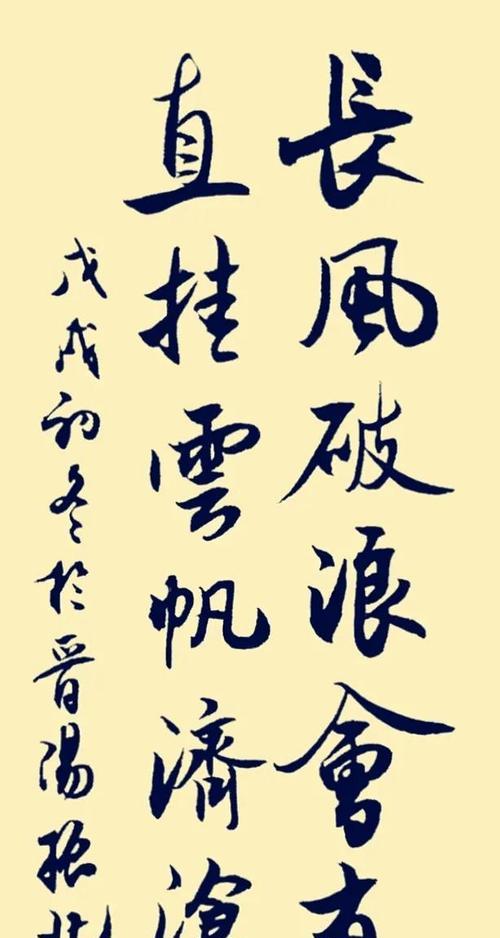 長風破浪會有
直挂雲帆濟滄
戊戌初冬於晋陽張